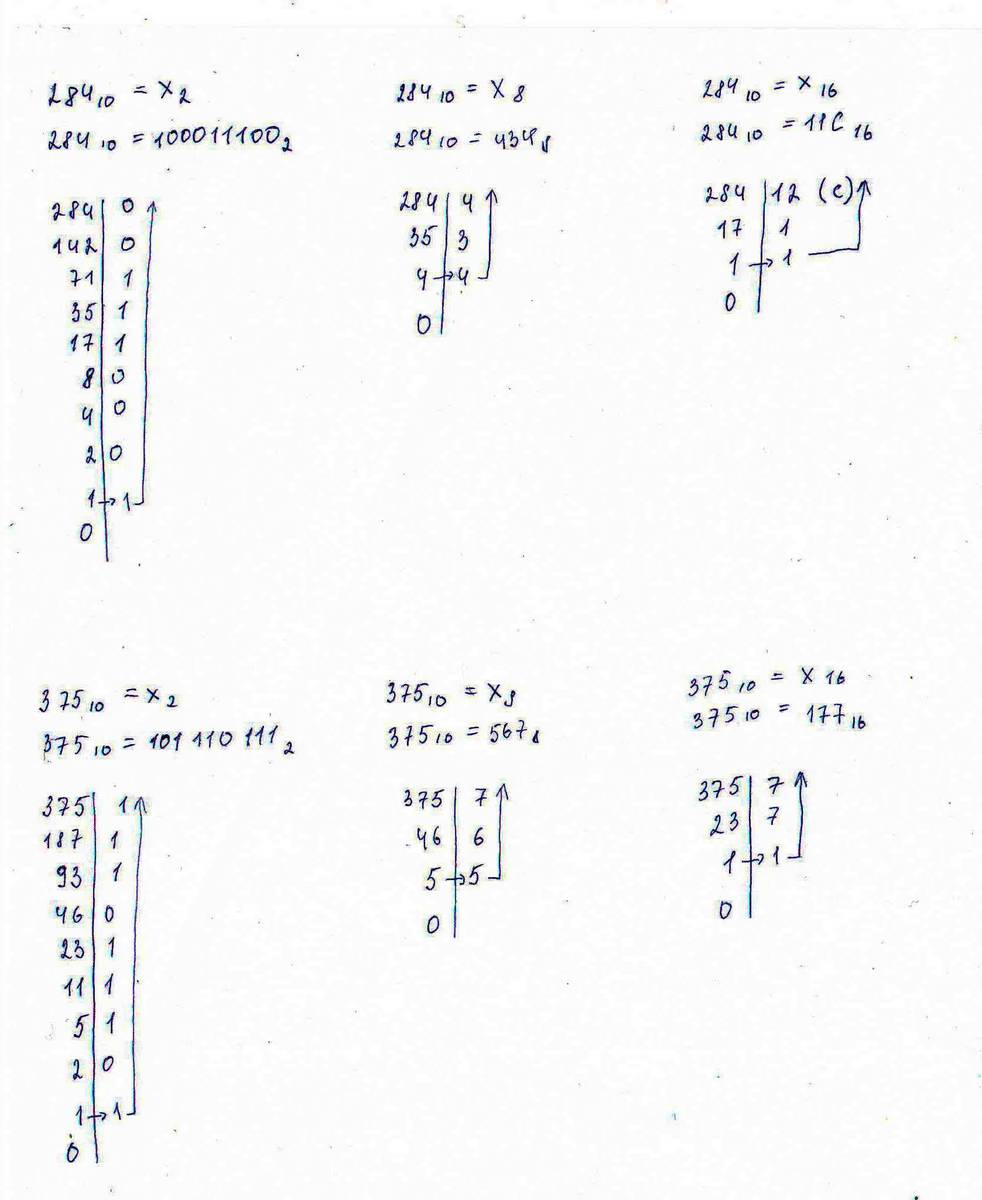 284₁₀ = X₂
284₁₀ = 100011100₂
284 | 0
142 | 0
71 | 1
35 | 1
17 | 1
8 | 0
4 | 0
2 | 0
1 → 1
0
284₁₀ = X₈
284₁₀ = 434₈
284 | 4
35 | 3
4 → 4
0
284₁₀ = X₁₆
284₁₀ = 11C₁₆
284 | 12 (C)
17 | 1
1 → 1
0
375₁₀ = X₂
375₁₀ = 101 110 111₂
375 | 1
187 | 1
93 | 1
46 | 0
23 | 1
11 | 1
5 | 1
2 | 0
1 → 1
0
375₁₀ = X₈
375₁₀ = 567₈
375 | 7
46 | 6
5 → 5
0
375₁₀ = X₁₆
375₁₀ = 177₁₆
375 | 7
23 | 7
1 → 1
0